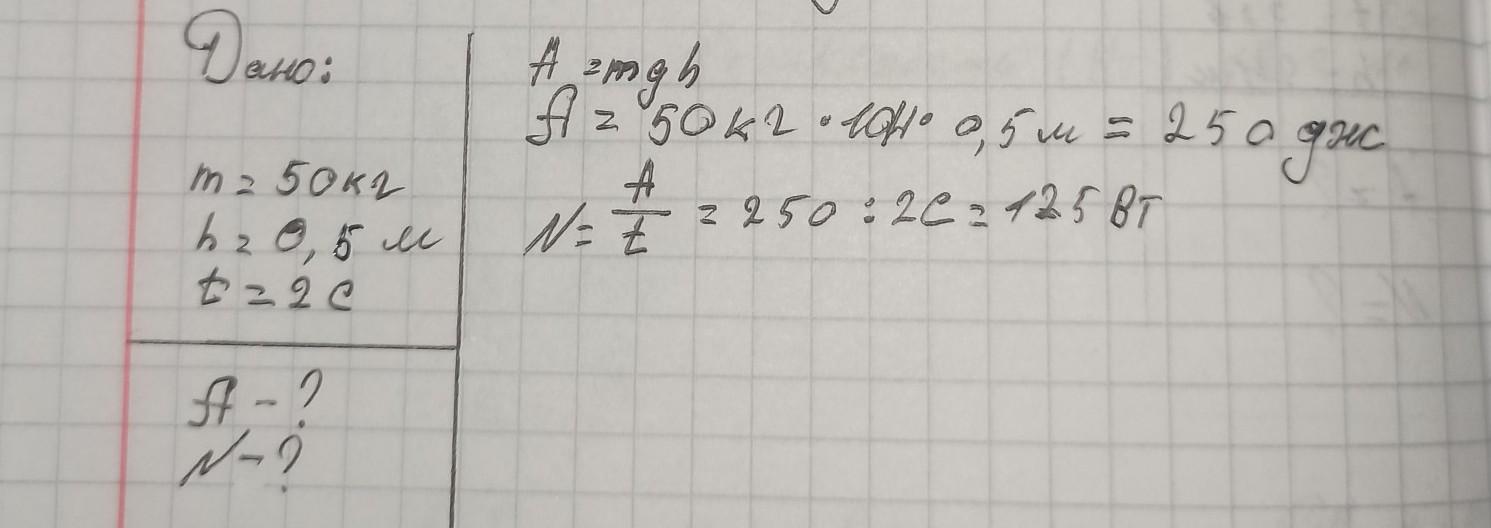 Дано:
m = 50 кг
h = 0,5 м
t = 2 с
A - ?
N - ?
A = mgh
A = 50 кг · 10Н · 0,5 м = 250 дж
N = A/t = 250 : 2С = 125 Вт